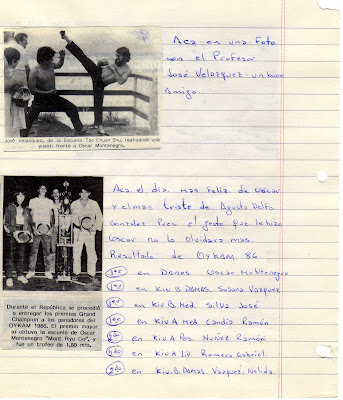 Aca en una Foto
con el Profesor
José Velazquez un buen
Amigo.
José Velazquez, de la Escuela Tae Chuan Shu, realizando una
yuanti frente a Oscar Montenegro.
Aca el día mas Feliz de Oscar
y el mas triste de Agusto Delfo
Gonzalez Pues el gesto que le hizo
Oscar no lo olvidara mas.
Resultado de OYKAM 86
1ero en Danes Oscar Montenegro
1ero en Kiu B DAMAS. Susana Vazquez
1ero en Kiu B Med. Silva José
1ero en Kiu A Med Candia Ramón
2do en Kiu A Pes. Nuñez Ramón
2do en Kiu A Liv. Romero Gabriel.
2do en Kiu. B. Damas Vazquez. Nelida.
Durante el República se procedió
a entregar los premios Grand
Champion a los ganadores del
OYKAM 1986. El premio mayor
lo obtuvo la escuela de Oscar
Montenegro "Mont Ryu Do", y
fue un trofeo de 1,80 mts.